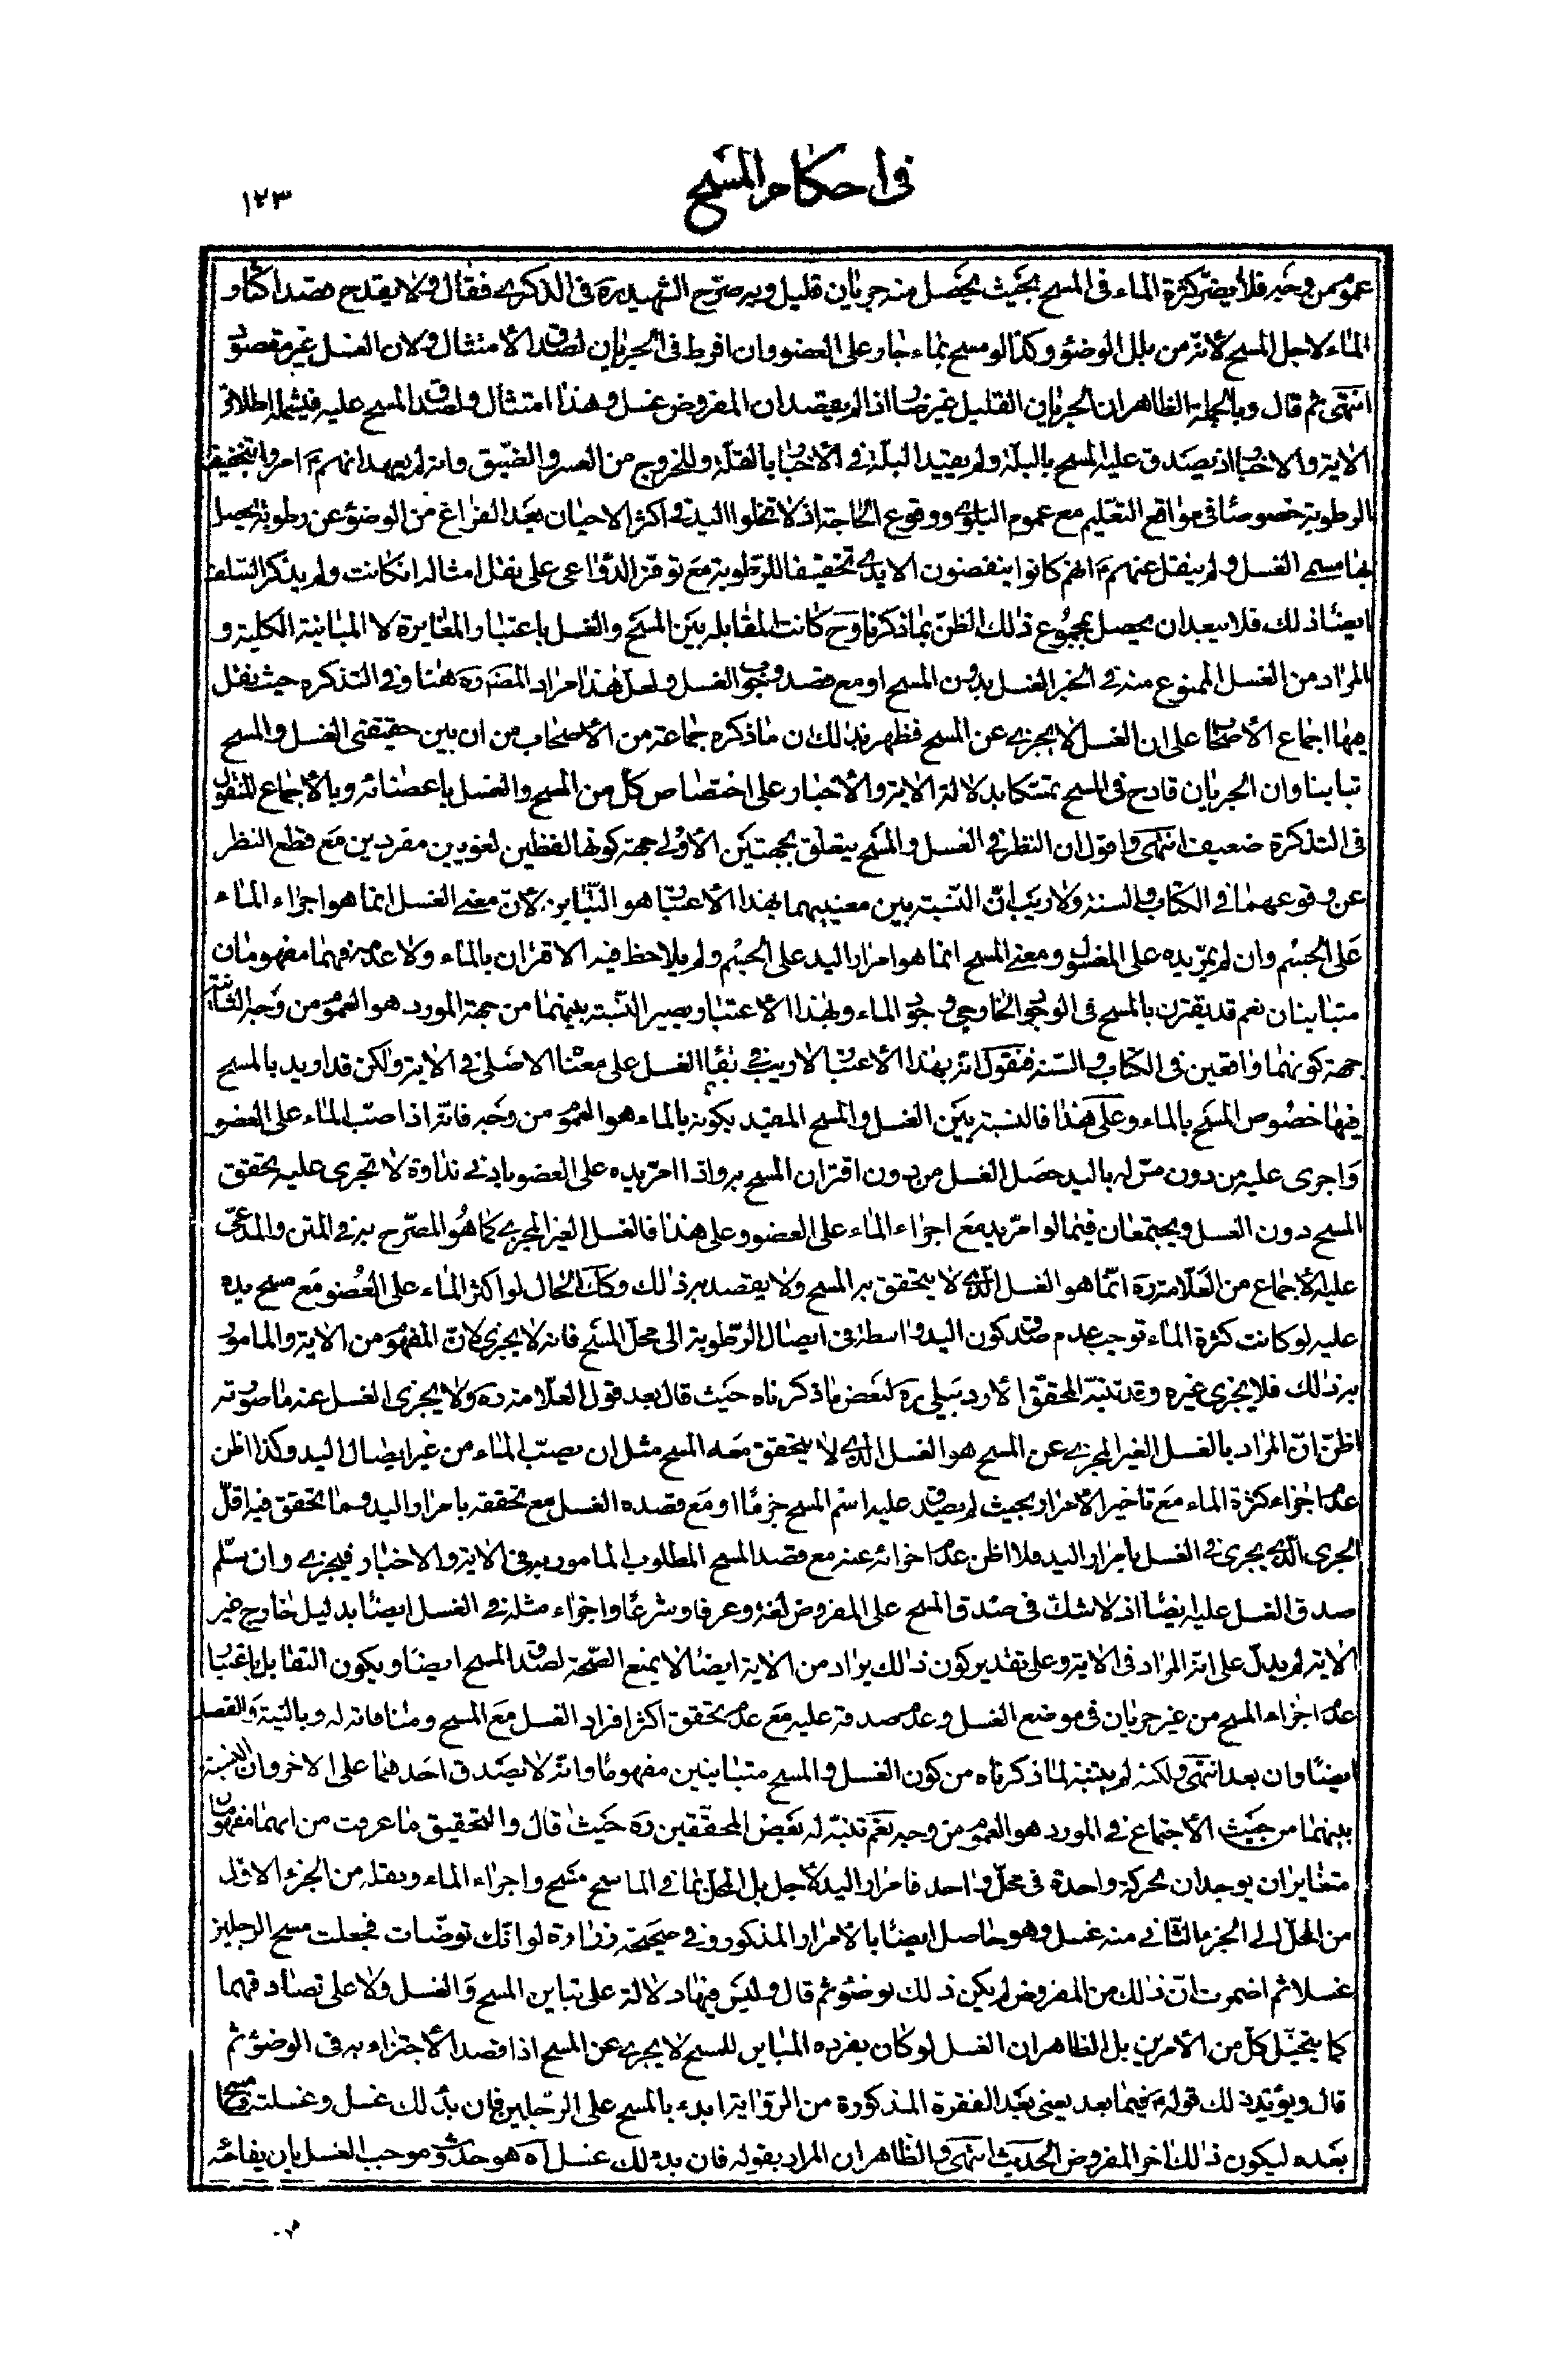 في احكام المسح
١٢٣
عموم من وجه فلا يضرّ كثرة الماء في المسح بحيث يحصل منه جريان قليل وبه صرّح الشهيد ره في الذكرى فقال ولا يقدح قصد اكثار
الماء لاجل المسح لأنّه من بلل الوضوء وكذا لو مسح بماء جار على العضو وان افرط في الجريان لصدق الأمتثال ولان الغسل غير مقصود
انتهى ثم قال وبالجملة الظاهر ان الجريان القليل غير ضار اذا لم يقصد ان المفروض غسل وهذا امتثال ولصدق المسح عليه فيشمله اطلاق
الاية والاخبار اذ يصدق عليه المسح بالبلّة ولم يقيد البلّة في الأخبار بالقلّة وللخروج من العسر والضيق وانه لم يعهد انهم ع امروا بتخفيف
الرطوبة خصوصًا في مواقع التعليم مع عموم البلوى ووقوع الحاجة اذ لا تخلوا اليد في اكثر الاحيان بعد الفراغ من الوضوء عن رطوبة يحصل
بها مسمى الغسل ولم ينقل عنهم ع انهم كانوا ينفضون الايدي تخفيفا للرّطوبة مع توفّر الدّواعي على نقل امثاله ان كانت ولم يذكر السلف
ايضًا ذلك فلا يبعد ان يحصل بمجموع ذلك الظنّ بما ذكرنا وح كانت المقابلة بين المسح والغسل باعتبار المغايرة لا المباينة الكلية و
المراد من الغسل الممنوع منه في الخبر الغسل بدون المسح او مع قصد وجوب الغسل ولعلّ هذا مراد المصنّف ره هنا وفي التذكره حيث نقل
فيها اجماع الأصحاب على ان الغسل لا يجزي عن المسح فظهر بذلك ان ما ذكره جماعة من الأصحاب من ان بين حقيقتي الغسل والمسح
تباينا وان الجريان قادح في المسح تمسّكا بدلالة الاية والأخبار على اختصاص كلّ من المسح والغسل باعضائه وبالأجماع المنقول
في التذكرة ضعيف انتهى واقول ان النظر في الغسل والمسح يتعلّق بجهتين الأولى جهة كونهما لفظين لغويين مفردين مع قطع النظر
عن وقوعهما في الكتاب والسنة ولا ريب انّ النّسبة بين معنييهما بهذا الأعتبار هو التّباين لأنّ معنى الغسل انما هو اجراء الماء
على الجسم وان لم يمرّ يده على المغسول ومعنى المسح انما هو امرار اليد على الجسم ولم يلاحظ فيه الاقتران بالماء ولا عدمه فهما مفهومان
متباينان نعم قد يقترن بالمسح في الوجود الخارجي وجود الماء وبهذا الأعتبار يصير النّسبة بينهما من جهة المورد هو العموم من وجه الثانية
جهة كونهما واقعين في الكتاب والسّنة فنقول انه بهذا الأعتبار لا ريب في بقاء الغسل على معناه الاصلي في الاية ولكن قد اريد بالمسح
فيها خصوص المسح بالماء وعلى هذا فالنسبة بين الغسل والمسح المقيد بكونه بالماء هو العموم من وجه فانه اذا صبّ الماء على العضو
واجرى عليه من دون مسّ له باليد حصل الغسل من دون اقتران المسح به واذا امرّ يده على العضو بادنى نداوة لا تجري عليه يحقق
المسح دون الغسل ويجتمعان فيما لو امرّ يده مع اجراء الماء على العضو وعلى هذا فالغسل الغير المجزي كما هو المصرّح به في المتن والمدعى
عليه الأجماع من العلّامة ره انّما هو الغسل الذي لا يتحقق به المسح ولا يقصد به ذلك وكك الحال لو اكثر الماء على العضو مع مسح يده
عليه لو كانت كثرة الماء توجب عدم صدق كون اليد واسطة في ايصال الرّطوبة الى محلّ المسح فانه لا يجزي لانّ المفهوم من الاية والمامور
به ذلك فلا يجزي غيره وقد تنبّه المحقّق الأردبيلي ره لبعض ما ذكرناه حيث قال بعد قول العلّامة ره ولا يجزي الغسل عنه ما صورته
اظنّ انّ المراد بالغسل الغير المجزي عن المسح هو الغسل الذي لا يتحقق معه المسح مثل ان يصبّ الماء من غير ايصال اليد وكذا اظن
عدم اجزاء كثرة الماء مع تاخير الأمرار بحيث لم يصدق عليه اسم المسح جزمًا او مع قصده الغسل مع تحققه بامرار اليد وما تحقق فيه اقلّ
الجري الّذي يجري في الغسل بامرار اليد فلا اظن عدم اجزائه عنه مع قصد المسح المطلوب المامور به في الاية والاخبار فيجزي وان سلّم
صدق الغسل عليه ايضًا اذ لا شك في صدق المسح على المفروض لغة وعرفا وشرعًا واجزاء مثله في الغسل ايضًا بدليل خارج غير
الاية لم يدلّ على انه المراد في الاية وعلى تقدير كون ذلك يراد من الاية ايضا لا يمنع الصّحة لصدق المسح ايضا ويكون التقابل باعتبار
عدم اجزاء المسح من غير جريان في موضع الغسل وعدم صدقه عليه مع عدم تحقق اكثر افراد الغسل مع المسح ومنافاته له وبالنّية والقصد
ايضًا وان بعد انتهى ولكنه لم يتنبه لما ذكرناه من كون الغسل والمسح متباينين مفهومًا وانّه لا يصدق احدهما على الاخر وان النسبة
بينهما من حيث الأجتماع في المورد هو العموم من وجه نعم تنبّه له بعض المحقّقين ره حيث قال والتحقيق ما عرفت من انهما مفهومان
متغايران يوجدان بحركة واحدة في محلّ واحد فامرار اليد لأجل بلّ المحلّ بما في الماسح مسح واجراء الماء ونقله من الجزء الاوّل
من المحلّ الى الجزء الثّاني منه غسل وهو حاصل ايضًا بالامرار المذكور وفي صحيحة زرارة لو انّك توضّات فجعلت مسح الرجلين
غسلا ثم اضمرت انّ ذلك من المفروض لم يكن ذلك بوضوء ثم قال وليس فيها دلالة على تباين المسح والغسل ولا على تصادقهما
كما يتخيّل كلّ من الأمرين بل الظاهر ان الغسل لو كان بفرده المباين للمسح لا يجزي عن المسح اذا قصد الأجتزاء به في الوضوء ثم
قال ويؤيّد ذلك قوله ع فيما بعد يعني بعد الفقرة المذكورة من الرّواية ابدء بالمسح على الرّجلين فان بدا لك غسل وغسلته فامسح
بعده ليكون ذلك اخر المفروض الحديث انتهى والظاهر ان المراد بقوله فان بدا لك غسل اه هو حدوث موجب الغسل بان يفاجئه